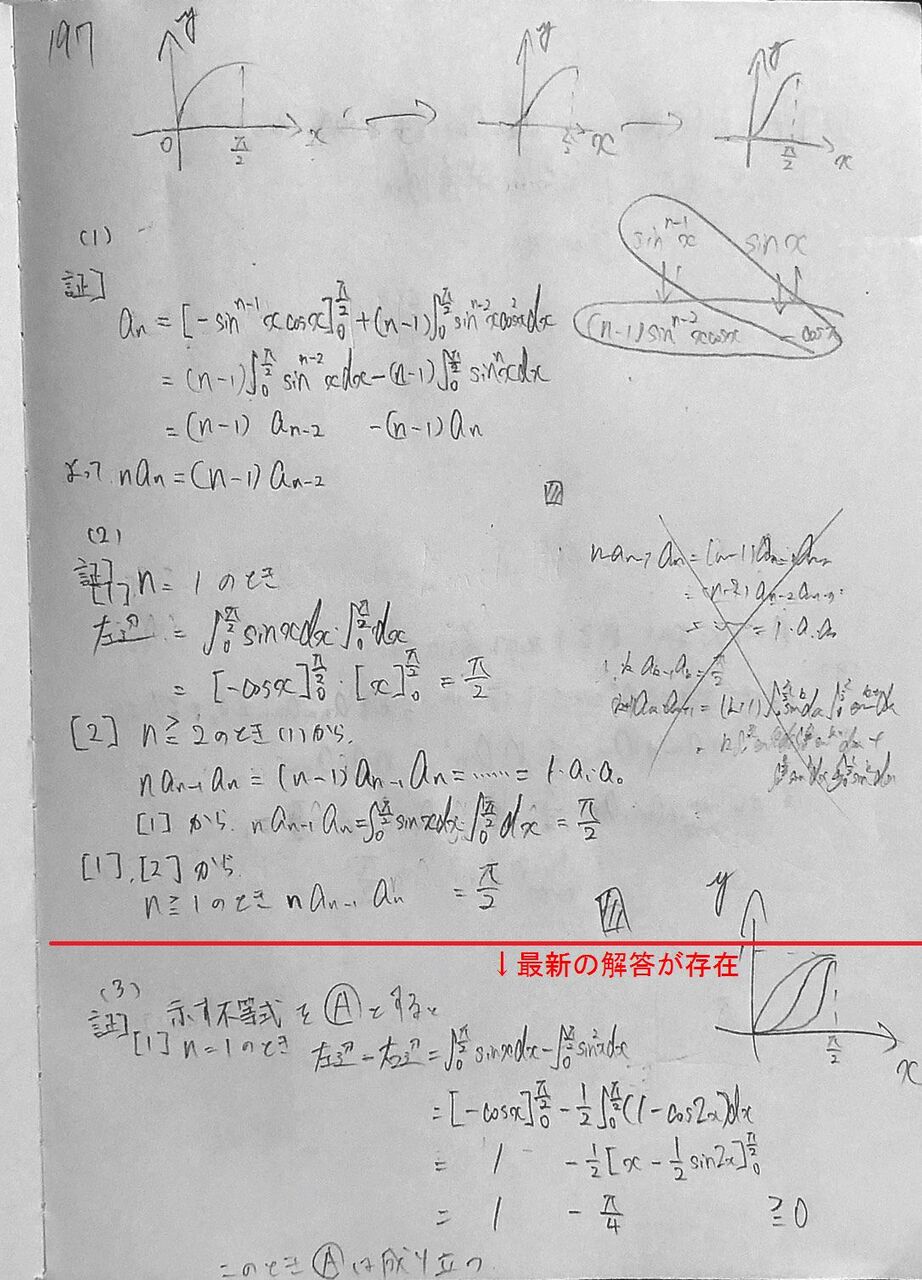 197
y y y
0 π/2 x → π/2 x → π/2 x
(1)
sin^{n-1}x sinx
証]
a_n = [-sin^{n-1}x cosx]_0^{π/2} + (n-1)∫_0^{π/2} sin^{n-2}x cos^2x dx
(n-1)sin^{n-2}x cosx -cosx
= (n-1)∫_0^{π/2} sin^{n-2}x dx - (n-1)∫_0^{π/2} sin^n x dx
= (n-1) a_{n-2} - (n-1) a_n
よって n a_n = (n-1) a_{n-2}
(2)
証] [1] n = 1 のとき
左辺 = ∫_0^{π/2} sinx dx · ∫_0^{π/2} dx
= [-cosx]_0^{π/2} · [x]_0^{π/2} = π/2
[2] n ≧ 2 のとき (1)から,
n a_{n-1} a_n = (n-1) a_{n-1} a_n = …… = 1·a_1 a_0
[1] から n a_{n-1} a_n = ∫_0^{π/2} sinx dx · ∫_0^{π/2} dx = π/2
[1], [2] から
n ≧ 1 のとき n a_{n-1} a_n = π/2
y
↓最新の解答が存在
π/2 x
(3)
証] 示す不等式を Ⓐ とすると
[1] n = 1 のとき 左辺 - 右辺 = ∫_0^{π/2} sinx dx - ∫_0^{π/2} sin^2x dx
= [-cosx]_0^{π/2} - 1/2 ∫_0^{π/2} (1-cos2x)dx
= 1 - 1/2 [x - 1/2 sin2x]_0^{π/2}
= 1 - π/4 ≧ 0
このとき Ⓐ は成り立つ